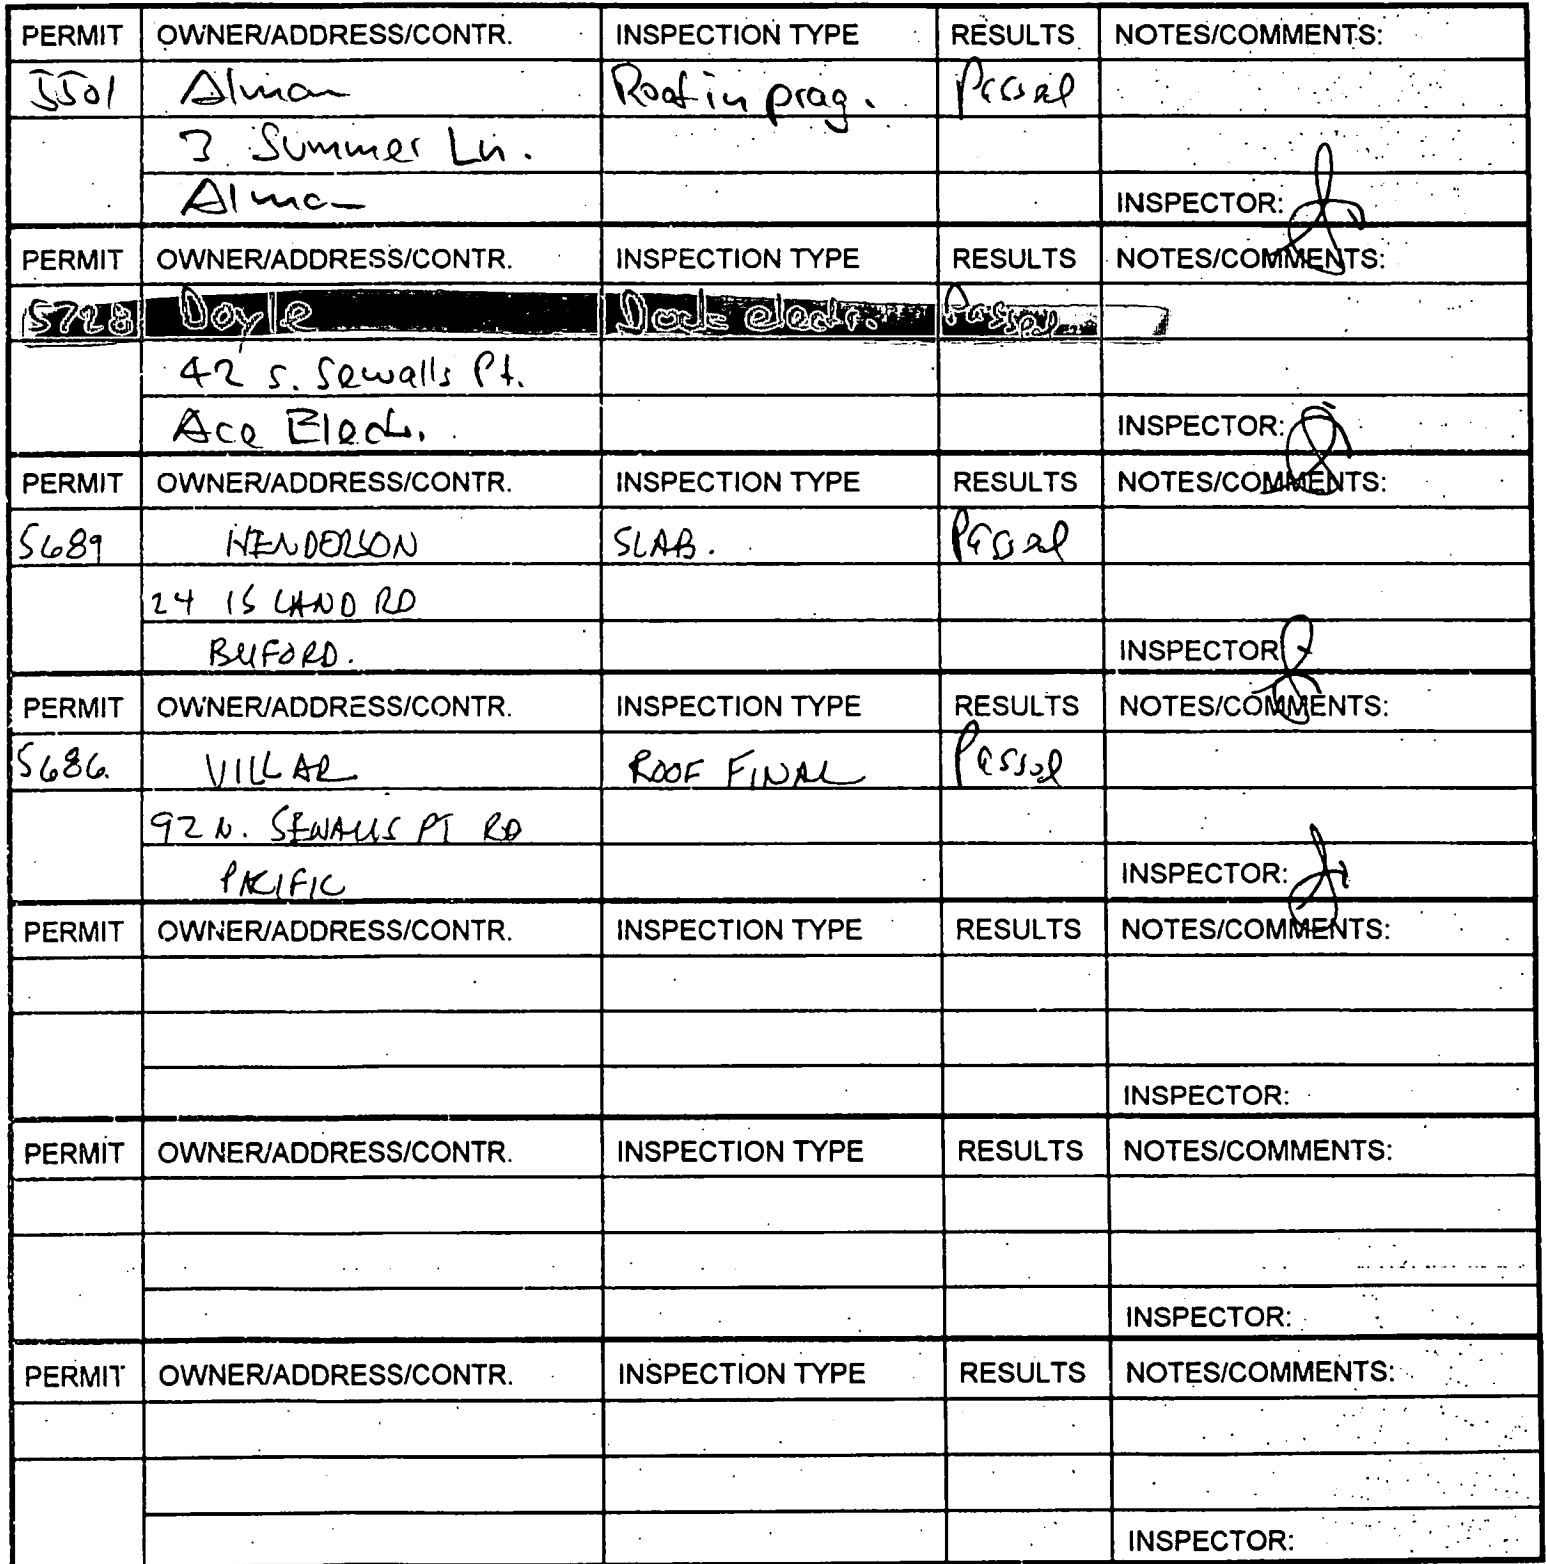 PERMIT OWNER/ADDRESS/CONTR. INSPECTION TYPE RESULTS NOTES/COMMENTS:
5501 Alman Roof in prog. Passed
3 Summer Ln.
Alman INSPECTOR:
PERMIT OWNER/ADDRESS/CONTR. INSPECTION TYPE RESULTS NOTES/COMMENTS:
5728 Doyle Dock electr. Passed
42 S. Sewalls Pt.
Ace Elect. INSPECTOR:
PERMIT OWNER/ADDRESS/CONTR. INSPECTION TYPE RESULTS NOTES/COMMENTS:
5689 HENDERSON SLAB. Passed
24 ISLAND RD
BUFORD. INSPECTOR
PERMIT OWNER/ADDRESS/CONTR. INSPECTION TYPE RESULTS NOTES/COMMENTS:
5686. VILLAR ROOF FINAL Passed
92 N. SEWALLS PT RD
PACIFIC INSPECTOR:
PERMIT OWNER/ADDRESS/CONTR. INSPECTION TYPE RESULTS NOTES/COMMENTS:
INSPECTOR:
PERMIT OWNER/ADDRESS/CONTR. INSPECTION TYPE RESULTS NOTES/COMMENTS:
INSPECTOR:
PERMIT OWNER/ADDRESS/CONTR. INSPECTION TYPE RESULTS NOTES/COMMENTS:
INSPECTOR: